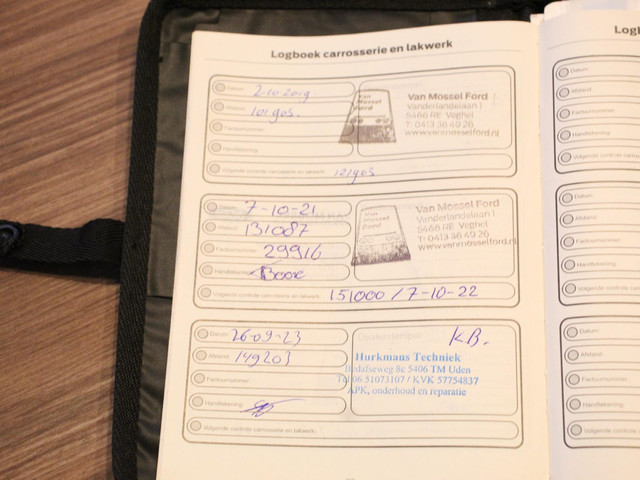 Logboek carrosserie en lakwerk
Datum: 2-10-2019
Afstand: 101905.
Factuurnummer:
Handtekening:
Volgende controle carrosserie en lakwerk: 121905
Van Mossel Ford
Van Mossel Ford
Vanderlandelaan 1
5466 RE Veghel
T: 0413 36 49 26
www.vanmosselford.nl
Datum: 7-10-21
Afstand: 131087
Factuurnummer: 29916
Handtekening:
Volgende controle carrosserie en lakwerk: 151000 / 7-10-22
Van Mossel Ford
Van Mossel Ford
Vanderlandelaan 1
5466 RE Veghel
T: 0413 36 49 26
www.vanmosselford.nl
Datum: 26-09-23
Afstand: 149203
Factuurnummer:
Handtekening:
Volgende controle carrosserie en lakwerk:
KB.
Hurkmans Techniek
8c 5406 TM Uden
Tel 06 51073107 / KVK 57754837
APK, onderhoud en reparatie
Datum:
Afstand:
Factuurnummer:
Handtekening:
Volgende controle carrosserie en
Datum:
Afstand:
Factuurnummer:
Handtekening:
Volgende controle carrosserie en
Datum:
Afstand:
Factuurnummer:
Handtekening:
Volgende controle carrosserie en